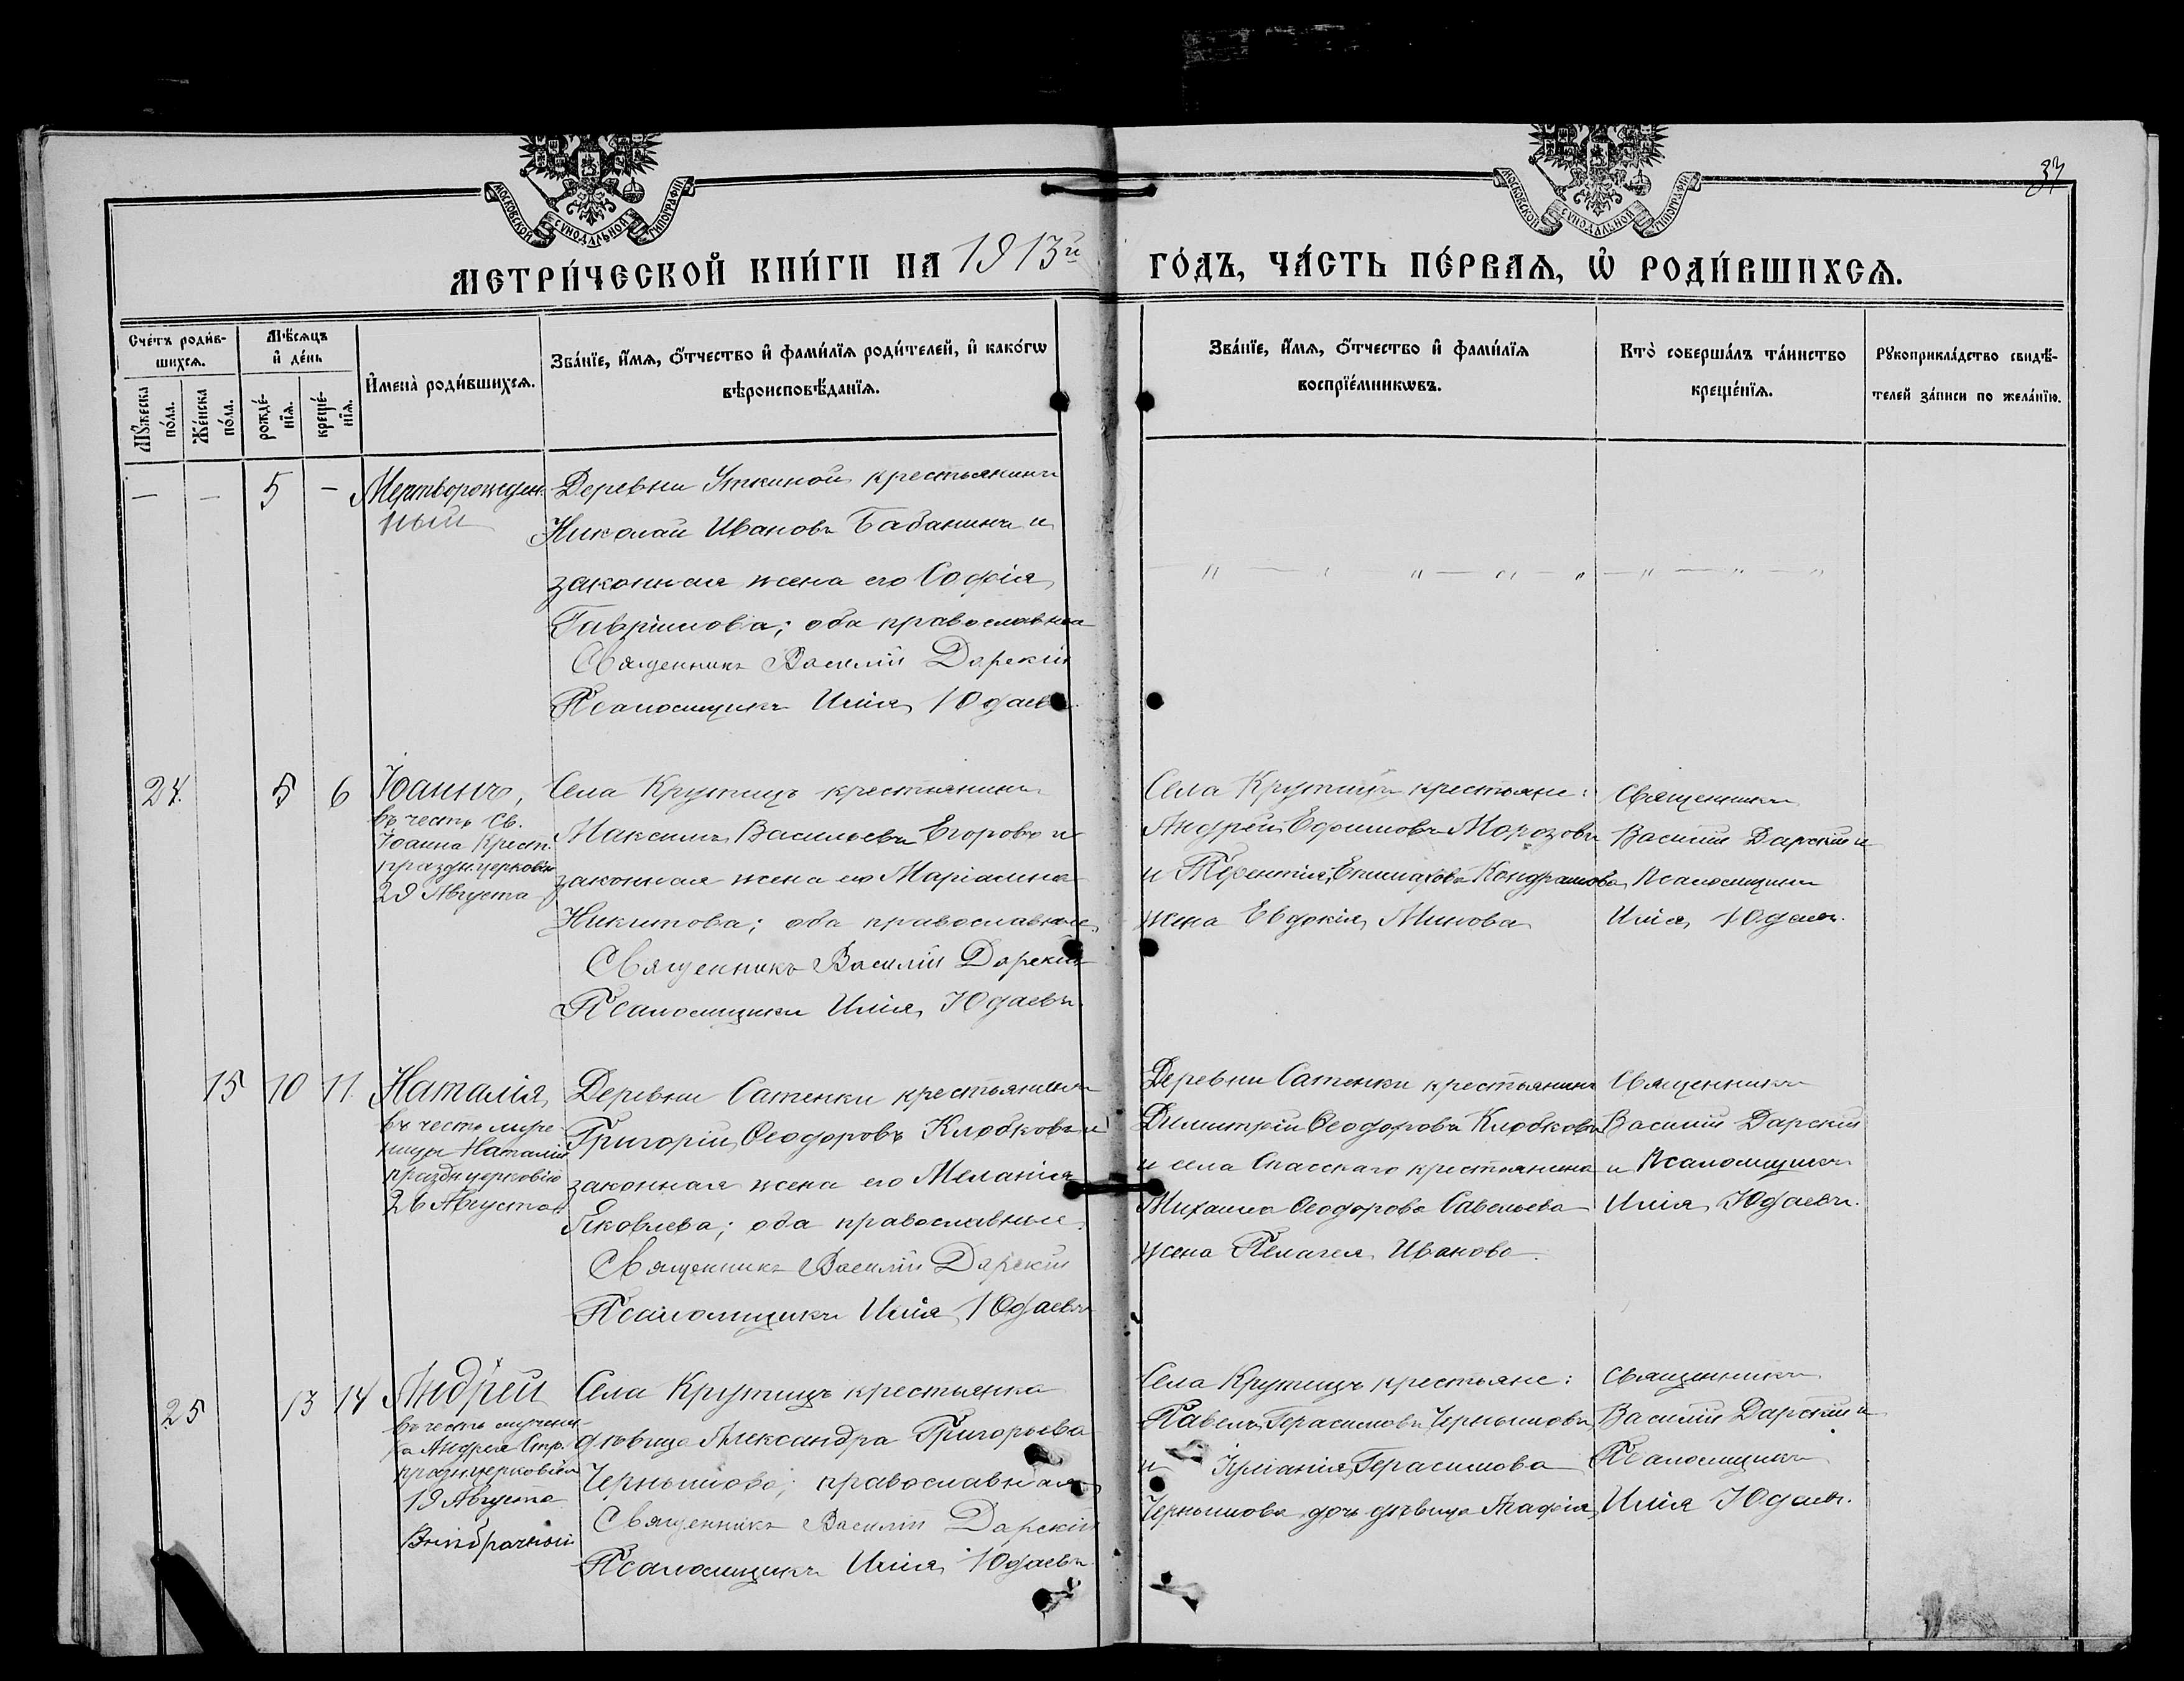 МОСКОВСКОЙ СѴНОДАЛЬНОЙ ТИПОГРАФІИ
МОСКОВСКОЙ СѴНОДАЛЬНОЙ ТИПОГРАФІИ
МЕТРИ́ЧЕСКОЙ КНИ́ГИ НА 1913й ГО́ДЪ, ЧА́СТЬ ПЕ́РВАѦ, Ѡ РОДИ́ВШИХСѦ.
Сче́тъ роди́в-
шихсѧ.
Мꙋ́жеска
по́ла.
Же́нска
по́ла.
Мѣ́сѧцъ
и҆ де́нь
рожде́-
нїѧ.
креще́-
нїѧ.
И҆мена̀ роди́вшихсѧ.
Зва́нїе, и҆́мѧ, ѻ҆́тчество и҆ фами́лїѧ роди́телей, и҆ како́гѡ
вѣроисповѣ́данїѧ.
Зва́нїе, и҆́мѧ, ѻ҆́тчество и҆ фами́лїѧ
воспрїе́мникѡвъ.
Кто̀ соверша́лъ та́инство
креще́нїѧ.
Рꙋкоприкла́дство свидѣ́-
телей за́писи по жела́нїю.
— — 5 —
Мертворожден-
ный
Деревни Уткиной крестьянинъ
Николай Ивановъ Бабанинъ и
законная жена его Софія
Гавріилова; оба православные
Священникъ Василій Дарскій
Псаломщикъ Илія Юдаевъ.
24. 5 6
Іоаннъ,
въ честь Св.
Іоанна Крест.
праздн. церковію
29 Августа
Села Крутицъ крестьянинъ
Максимъ Васильевъ Егоровъ и
законная жена его Маріамна
Никитова; оба православные
Священникъ Василій Дарскій
Псаломщикъ Илія Юдаевъ.
Села Крутицъ крестьяне:
Андрей Ефимовъ Морозовъ
и Терентія Епимахова Кондрашова
жена Евдокія Минова
Священникъ
Василій Дарскій и
Псаломщикъ
Илія Юдаевъ.
15 10 11
Наталія,
въ честь муче-
ницы Наталіи
праздн. церковію
26 Августа
Деревни Сатенки крестьянинъ
Григорій Ѳеодоровъ Клюбковъ и
законная жена его Меланія
Яковлева; оба православные.
Священникъ Василій Дарскій
Псаломщикъ Илія Юдаевъ
Деревни Сатенки крестьянинъ
Димитрій Ѳеодоровъ Клюбковъ
и села Спасскаго крестьянина
Михаила Ѳеодорова Савельева
жена Пелагея Иванова.
Священникъ
Василій Дарскій
и Псаломщикъ
Илія Юдаевъ.
25 13 14
Андрей
въ честь мучени-
ка Андрея Стр.
праздн. церковію
19 Августа
Внѣбрачный
Села Крутицъ крестьянка
дѣвица Александра Григорьева
Чернышова; православная
Священникъ Василій Дарскій
Псаломщикъ Илія Юдаевъ.
Села Крутицъ крестьяне:
Павелъ Герасимовъ Чернышовъ
и Іуліанія Герасимова
Чернышова дочь дѣвица Агафія
Священникъ
Василій Дарскій и
Псаломщикъ
Илія Юдаевъ.